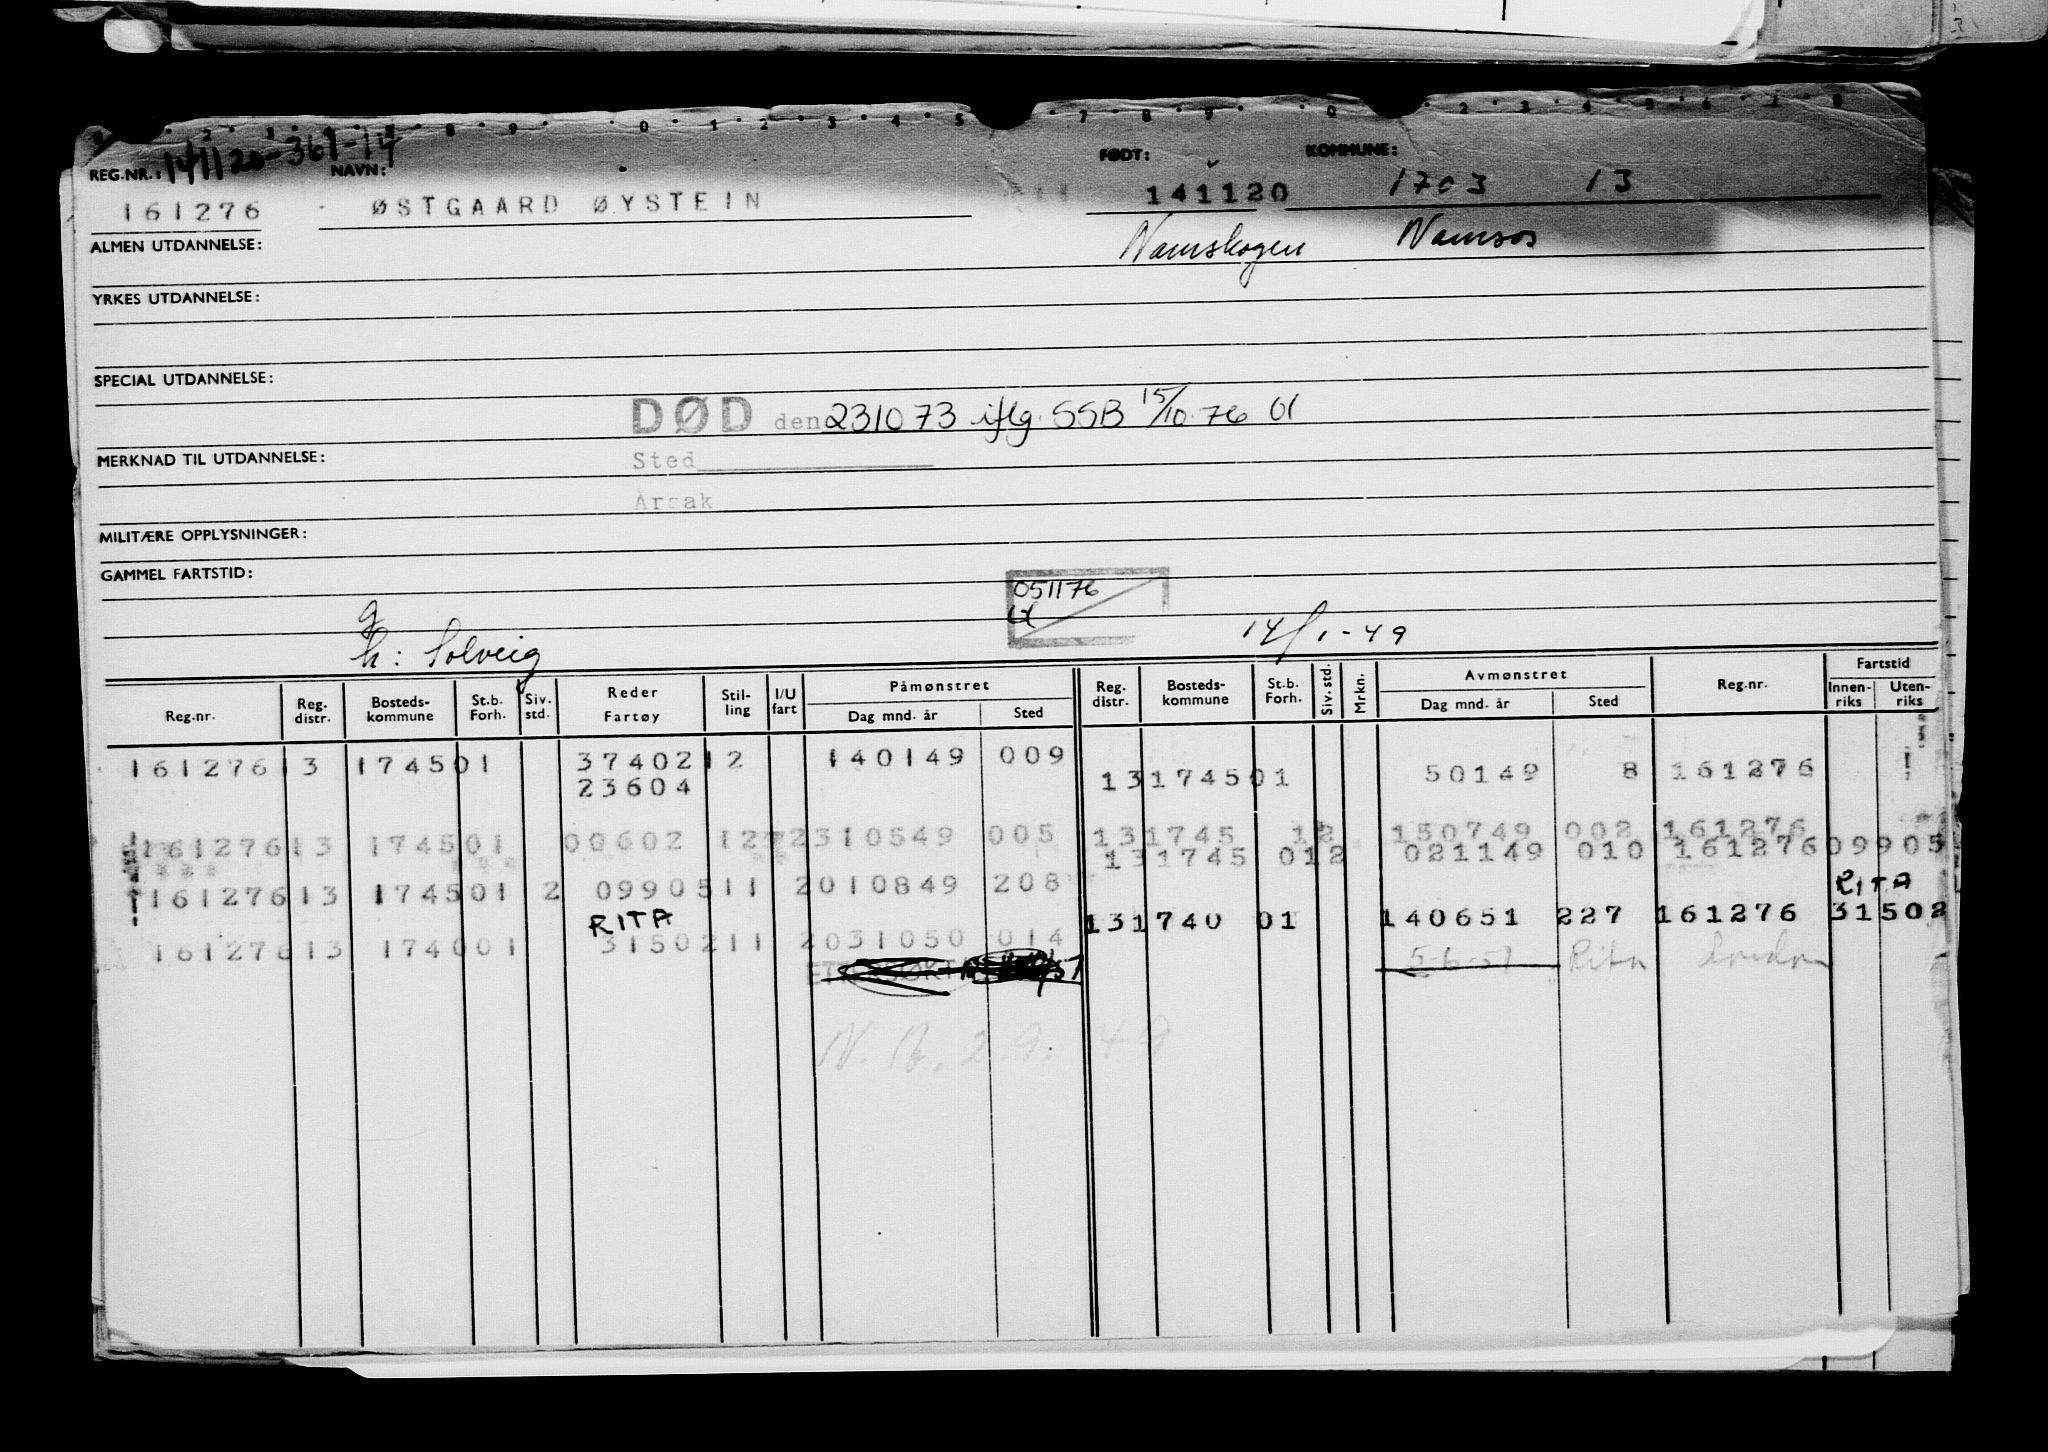 REG.NR.: 141120-367-14 NAVN: FØDT: KOMMUNE:
161276 ØSTGAARD ØYSTEIN 141120 1703 13
ALMEN UTDANNELSE: Namskogen Namsos
YRKES UTDANNELSE:
SPECIAL UTDANNELSE:
DØD den 231073 iflg. SSB 15/10.76
MERKNAD TIL UTDANNELSE: Sted
Årsak
MILITÆRE OPPLYSNINGER:
GAMMEL FARTSTID:
051176
g
h: Solveig 14/1-49
Reg.nr. Reg. distr. Bosteds-kommune St.b. Forh. Siv. std. Reder Fartøy Stil-ling I/U fart Påmønstret Dag mnd. år Sted Reg. distr. Bosteds-kommune St.b. Forh. Siv. std. Mrkn. Avmønstret Dag mnd. år Sted Reg.nr. Fartstid Innen-riks Uten-riks
161276 13 1745 01 37402 12 140149 009
23604 13 1745 01 50149 8 161276
161276 13 1745 01 00602 12 2 310549 005 13 1745 12 150749 002 161276
13 1745 01 2 021149 010 161276 09905
161276 13 1745 01 2 09905 11 2 010849 208 RITA
RITA 13 1740 01 140651 227 161276 31502
161276 13 1740 01 31502 11 2 031050 014
5-6-51 Rita London
N. N. 2.9. 49